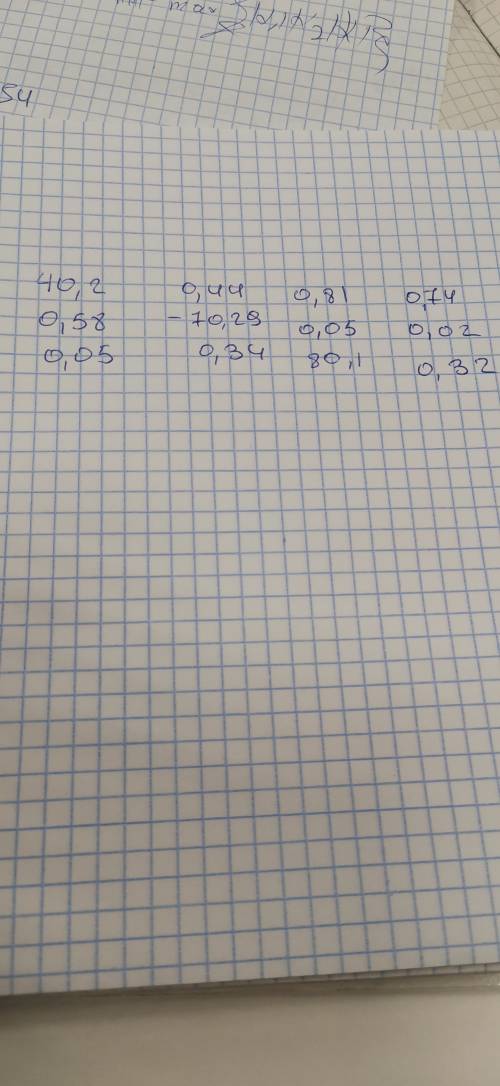 54
40,2 0,44 0,81 0,74
0,58 -70,29 0,05 0,02
0,05 0,34 80,1 0,32